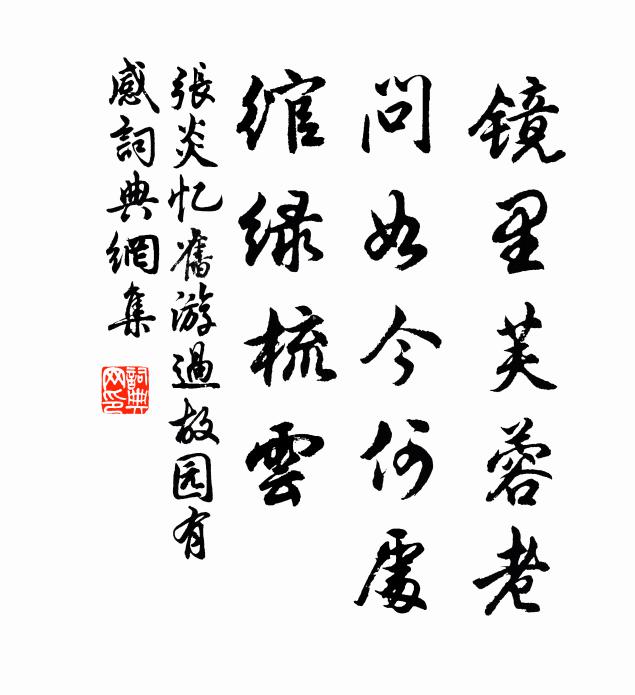 镜里芙蓉老
问如今何處
绾绿梳雲
張炎忆舊游過故园有
感詞典網集
詞典
网印